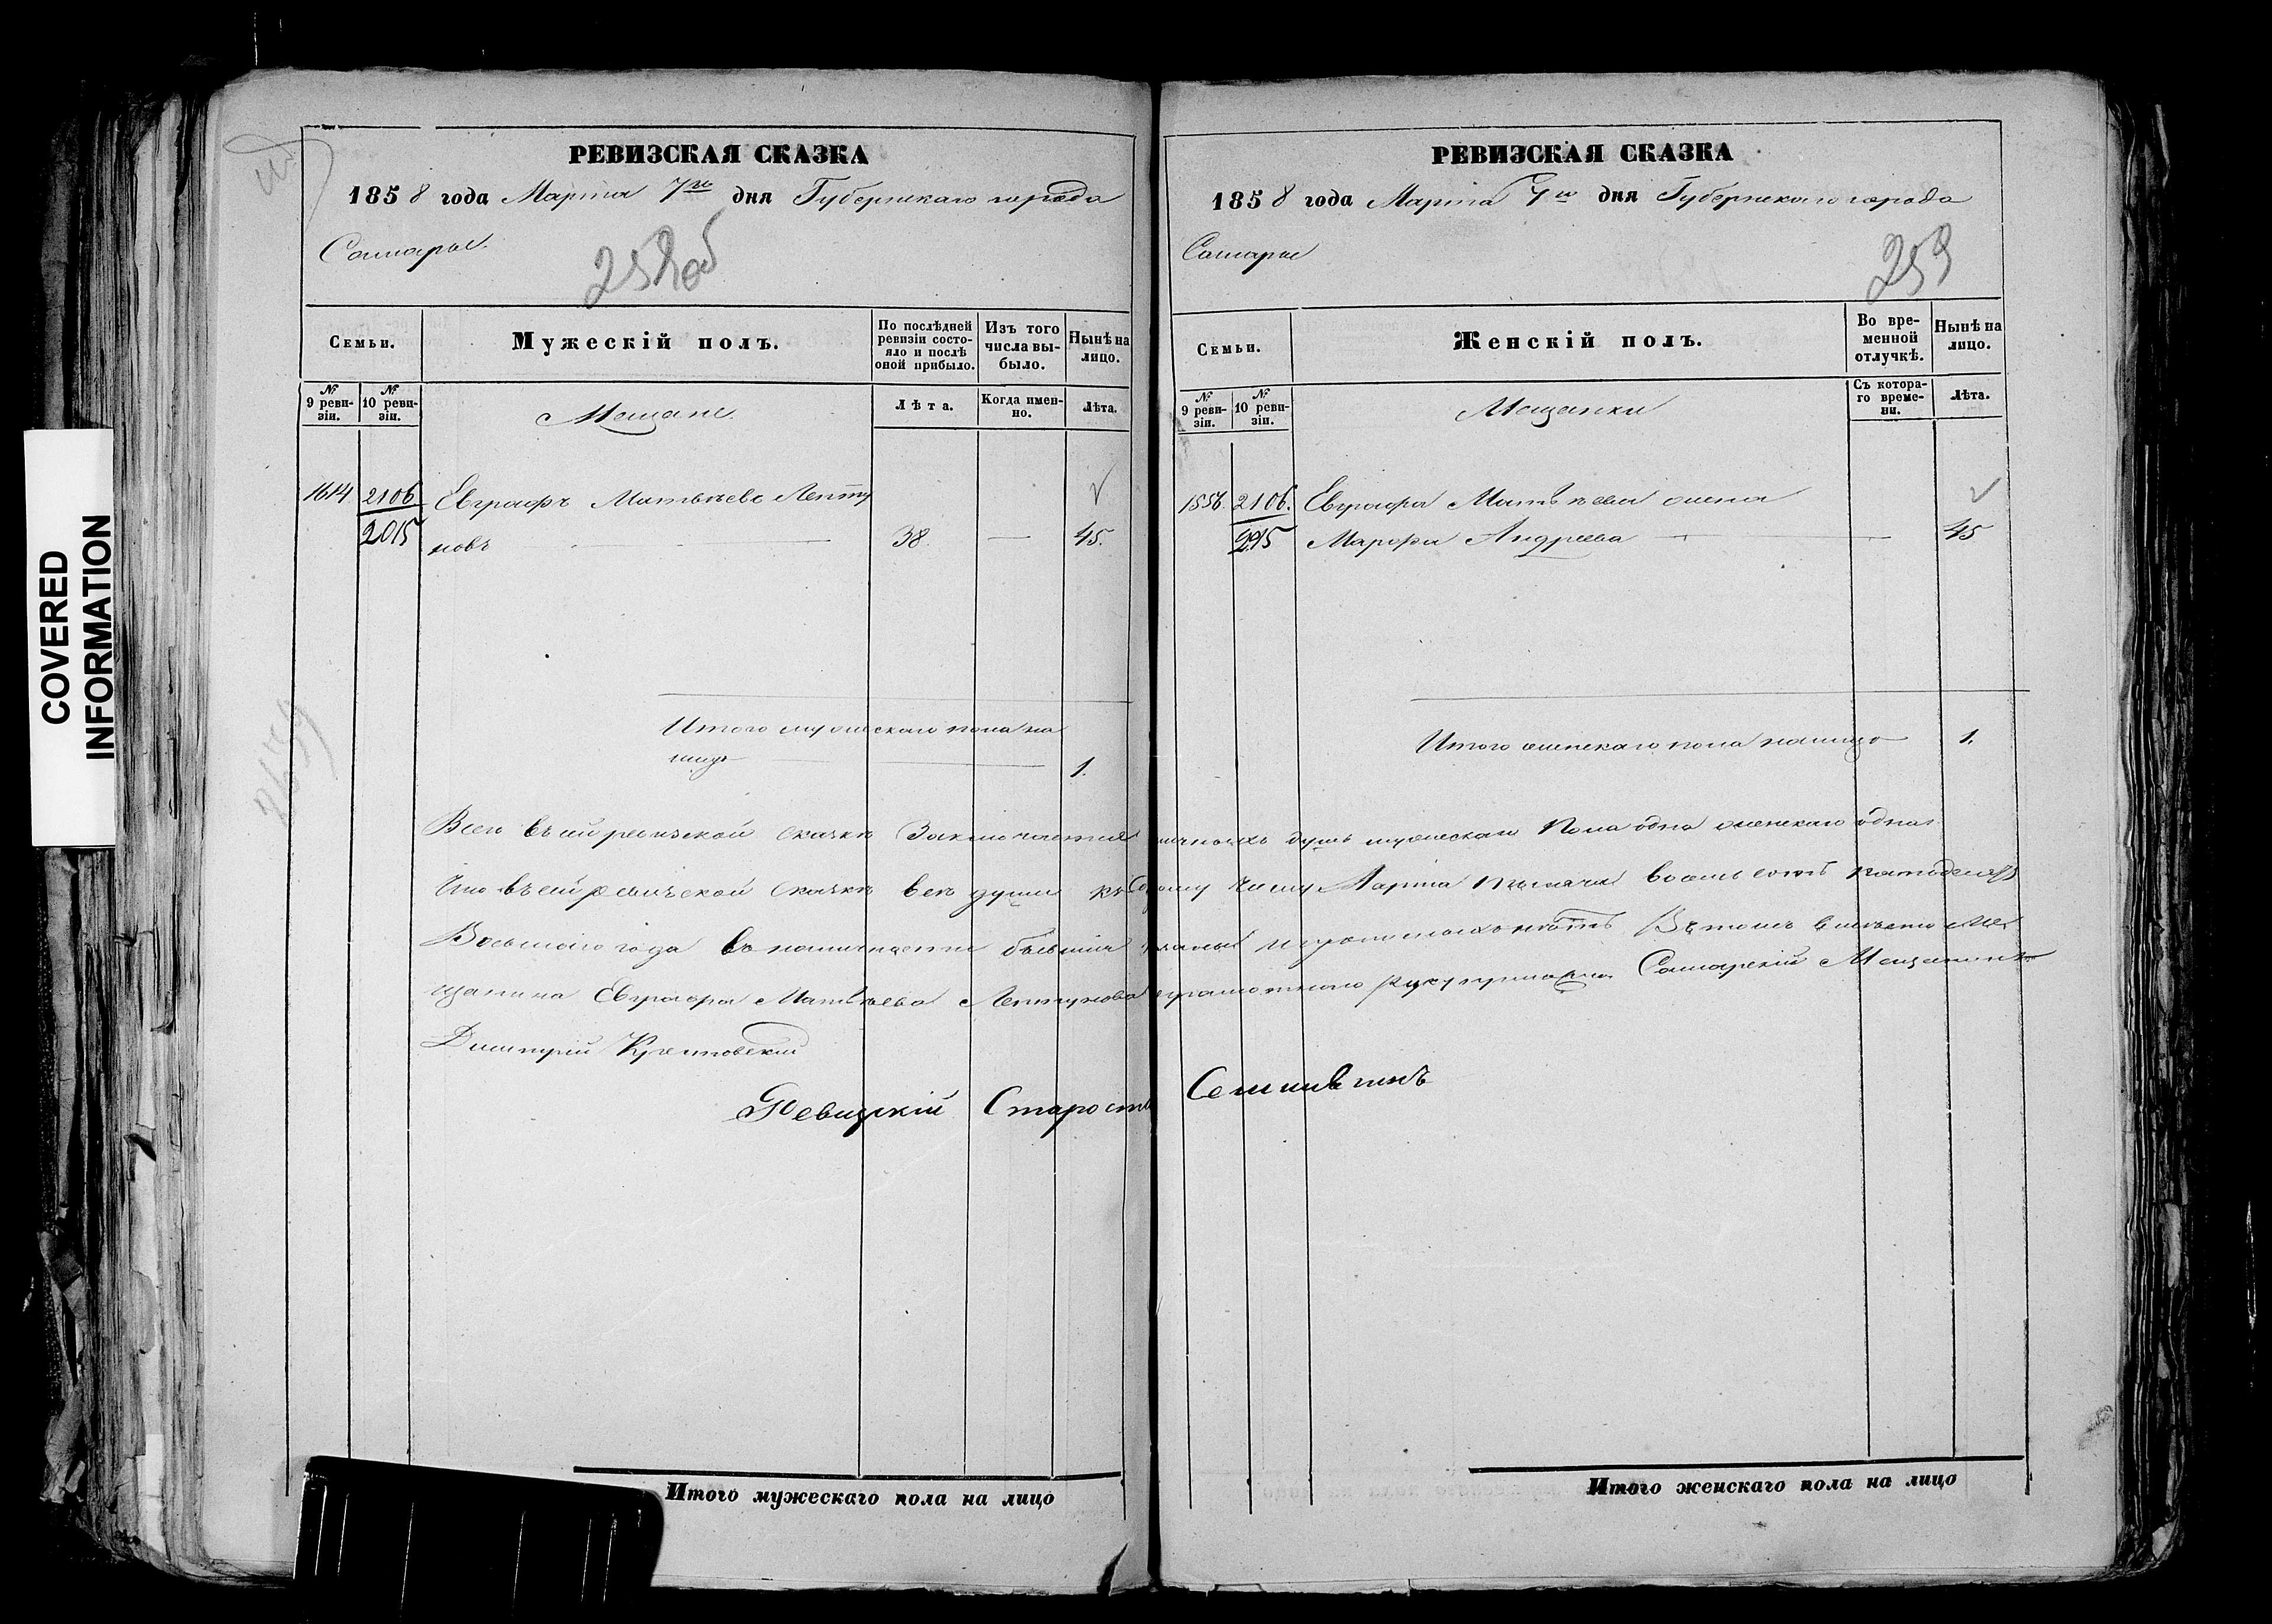 РЕВИЗСКАЯ СКАЗКА
1858 года Марта 7го дня Губернскаго города
Самары
258об
Семьи.
Мужескій полъ.
По послѣдней ревизіи состояло и послѣ оной прибыло.
Изъ того числа выбыло.
Нынѣ на лицо.
№ 9 ревизіи.
№ 10 ревизіи.
Мещане
Лѣта.
Когда именно.
Лѣта.
1614 2106 Евграфъ Матвѣевъ Лепту
2015 новъ 38. — 45.
Итого мужескаго пола на
лицо 1.
РЕВИЗСКАЯ СКАЗКА
1858 года Марта 7го дня Губернскаго города
Самары
259
Семьи.
Женскій полъ.
Во временной отлучкѣ.
Нынѣ на лицо.
№ 9 ревизіи.
№ 10 ревизіи.
Мещанки
Съ котораго времени.
Лѣта.
1556. 2106. Евграфа Матвѣева жена
2015 Марфа Андреева — 45
Итого женскаго пола налицо 1.
Всего въ сей ревизской сказкѣ заключается наличныхъ душъ мужескаго пола одна женскаго одна
Что въ сей ревизской сказкѣ всѣ души къ Седьмому числу Марта тысяча восемь сотъ пятьдесятъ
Восьмаго года въ наличности бывшія показаны и прописныхъ нѣтъ Въ томъ вмѣсто Ме
щанина Евграфа Матвѣева Лептунова неграмотнаго руку приложилъ Самарскій Мещанинъ
Димитрій
Ревизскій Староста
Итого мужескаго пола на лицо
Итого женскаго пола на лицо
COVERED
INFORMATION